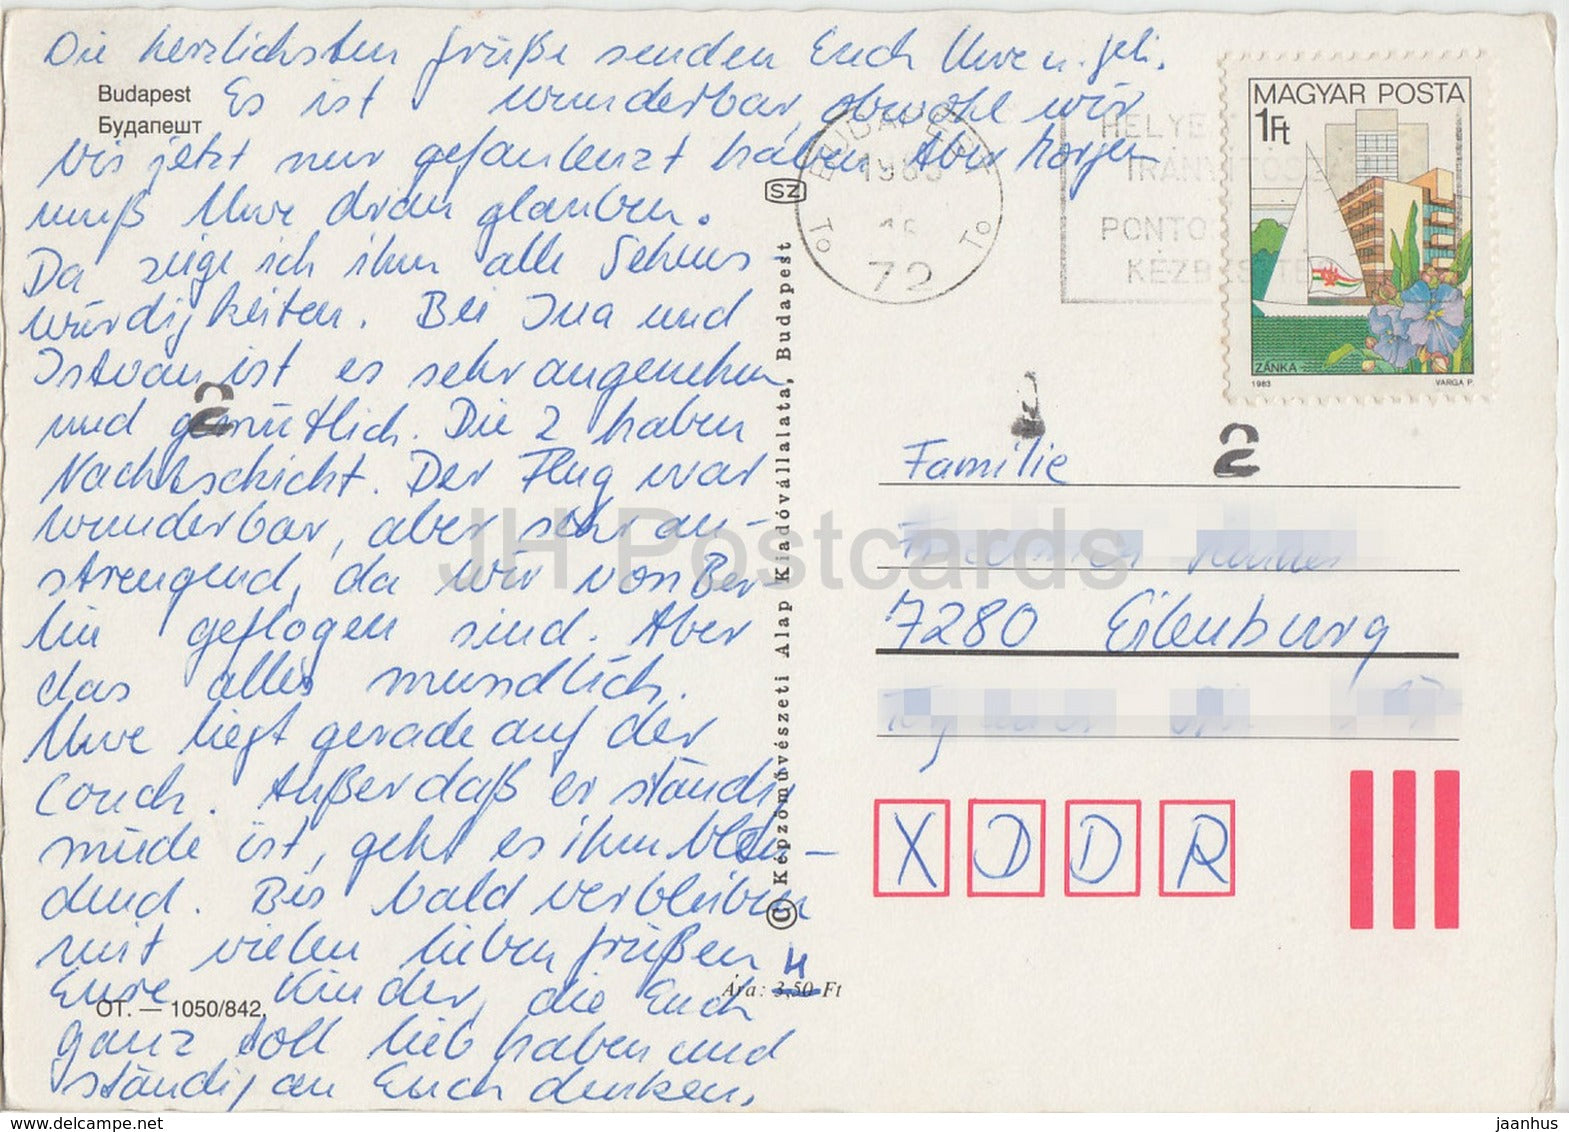 Die herzlichsten Grüße senden Euch Uwe u. Geli.
Budapest
Будапешт
Es ist wunderbar, obwohl wir
bis jetzt nur gefaulenzt haben. Aber Morgen
muß Uwe dran glauben.
Da zeige ich ihm alle Sehens-
würdigkeiten. Bei Ina und
Istvan ist es sehr angenehm
und gemütlich. Die 2 haben
Nachtschicht. Der Flug war
wunderbar, aber sehr an-
strengend, da wir von Ber-
lin geflogen sind. Aber
das alles mündlich.
Uwe liegt gerade auf der
Couch. Außer daß er ständig
müde ist, geht es ihm blen-
dend. Bis bald verbleiben
mit vielen lieben Grüßen
Eure Kinder, die Euch
ganz toll lieb haben und
ständig an Euch denken.
OT. — 1050/842
Ára: 3,50 Ft
4
SZ
© Képzőművészeti Alap Kiadóvállalata, Budapest
BUDAPEST
72
HELYES
IRÁNYÍTÓSZÁM
PONTOS
KÉZBESÍTÉS
MAGYAR POSTA
1Ft
ZÁNKA
1983
VARGA P.
2
2
Familie
7280 Eilenburg
X D D R
JH Postcards
jaanhus